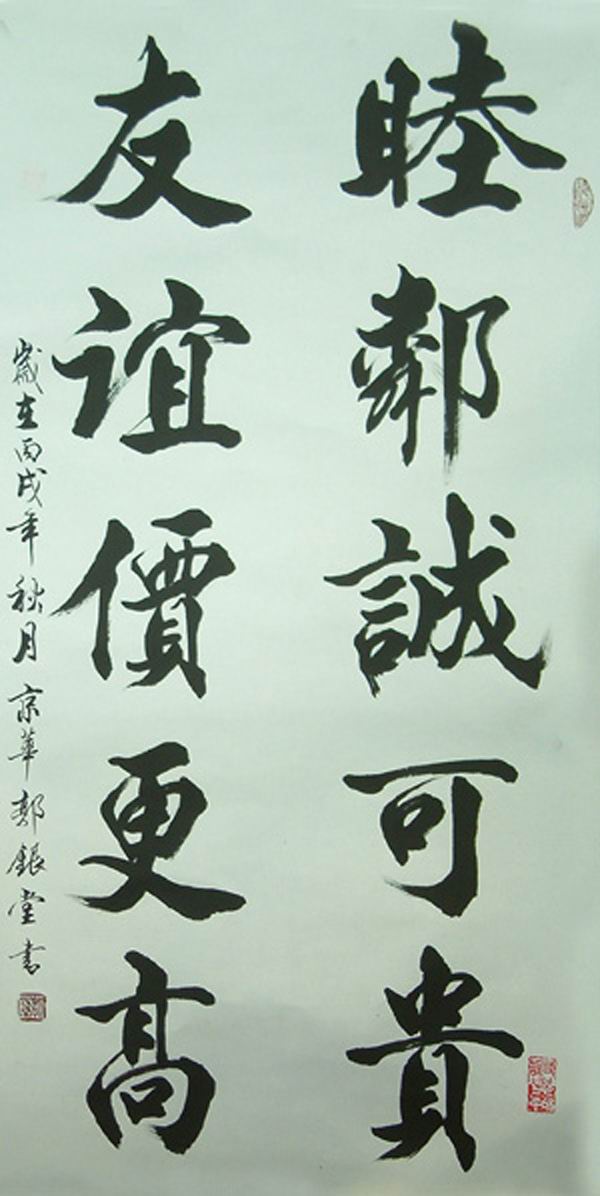 睦鄰誠可貴
友誼價更高
歲在丙戌年秋月京華鄭銀堂書